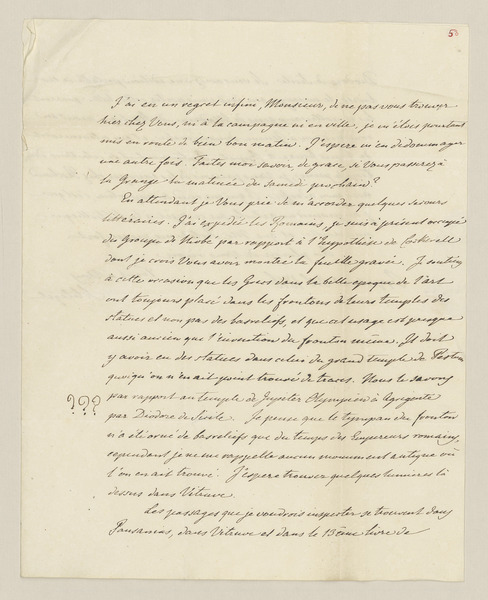 58
J'ai eu un regret infini, Monsieur, de ne pas vous trouver
hier chez Vous, ni à la campagne ni en ville, je m'étois pourtant
mis en route de bien bon matin. J'espere m'en dedommager
une autre fois. Faites moi savoir de grace, si Vous passerez à
la Grange la matinée du samedi prochain?
En attendant je Vous prie de m'accorder quelques secours
littéraires. J'ai expedié les Romains, je suis à présent occupé
du Groupe de Niobé par rapport à l'hypothèse de Cockerell
dont je crois Vous avoir montré la feuille gravée. Je soutiens
à cette occasion que les Grecs dans la belle epoque de l'art
ont toujours placé dans les frontons de leurs temples des
statues et non pas des basreliefs, et que cet usage est presque
aussi ancien que l'invention du fronton même. Il doit
y avoir eu des statues dans celui du grand temple de Pestum
quoiqu'on n'en ait point trouvé de traces. Nous le savons
par rapport au temple de Jupiter Olympien à Agrigente
??? par Diodore de Sicile. Je pense que le tympan du fronton
n'a été orné de basreliefs que du temps des Empereurs romains,
cependant je ne me rappelle aucun monument antique où
l'on en ait trouvé. J'espere trouver quelques lumières là
dessus dans Vitruve.
Les passages que je voudrois inspecter se trouvent dans
Pausanias, dans Vitruve et dans le 13eme livre de